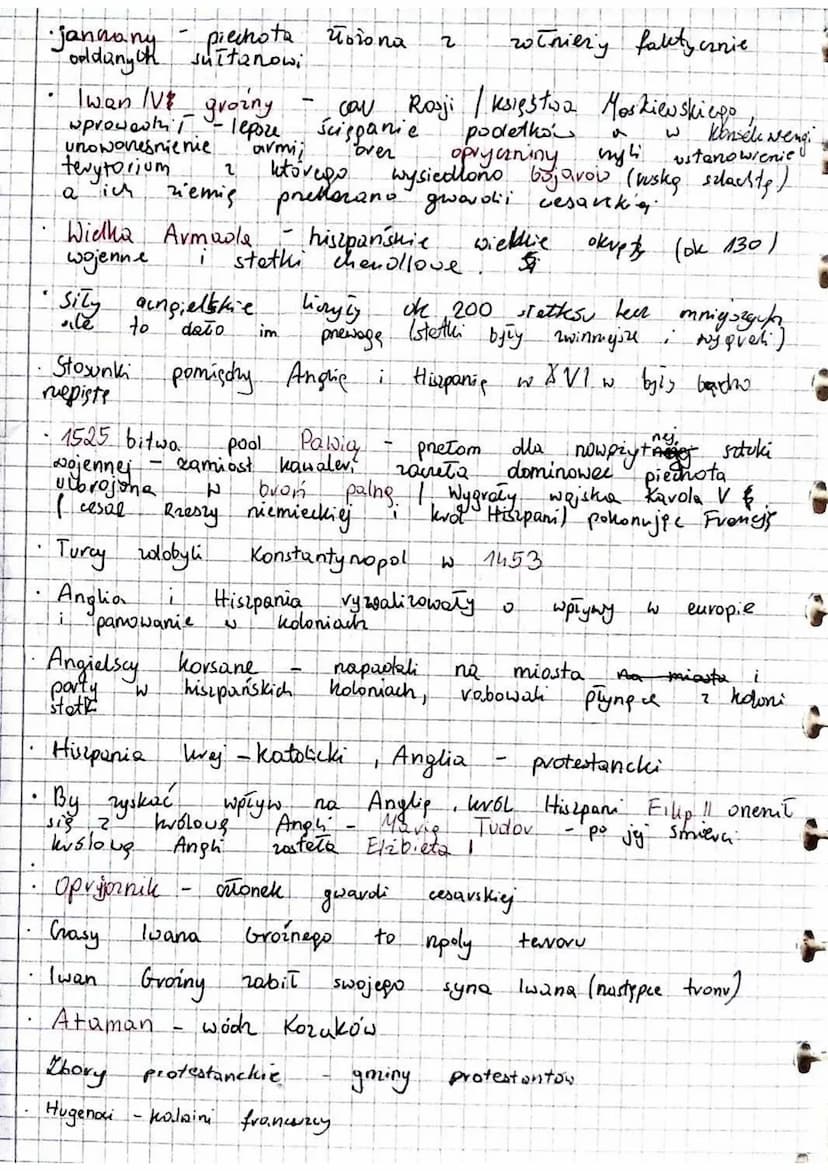 · janczarzy - piechota złożona z żołnierzy faktycznie
oddanych sułtanowi
· Iwan IV groźny - car Rosji / księstwa Moskiewskiego,
wprowadził - lepsze ściąganie podatków a w konsekwencji
unowocześnienie armii, oraz opryczniny czyli ustanowienie
terytorium z którego wysiedlono bojarów (ruską szlachtę)
a ich ziemię przekazano gwardii cesarskiej.
· Wielka Armada - hiszpańskie wielkie okręty (ok 130)
wojenne i statki chandlowe.
· Siły angielskie liczyły ok 200 statków lecz mniejszych
ale to dało im przewagę (statki były zwinniejsze i wygrali)
· Stosunki pomiędzy Anglią i Hiszpanią w XVI w były bardzo
napięte
· 1525 bitwa pod Pawią - przełom dla nowożytnej sztuki
wojennej - zamiast kawaleri zaczęła dominować piechota
uzbrojona w broń palną / Wygrały wojska Karola V
(cesarz Rzeszy niemieckiej i król Hiszpani) pokonując Francję
· Turcy zdobyli Konstantynopol w 1453
· Anglia i Hiszpania ryzwalizowały o wpływy w europie
i panowanie w koloniach
· Angielscy korsarze - napadali na miasta na miasta i
porty w hiszpańskich koloniach, rabowali płynące z koloni
statki
· Hiszpania kraj - katolicki, Anglia - protestancki
· By zyskać wpływ na Anglię, król Hiszpani Filip II ożenił
się z królową Angli - Marią Tudor - po jej śmierci
królową Angli została Elżbieta I
· Opryjcznik - członek gwardi cesarskiej
· Czasy Iwana Groźnego to rządy terroru
· Iwan Groźny zabił swojego syna Iwana (następce tronu)
· Ataman - wódz Kozaków
Zbory protestanckie - gminy protestantów
· Hugenoci - kalwini francuzcy